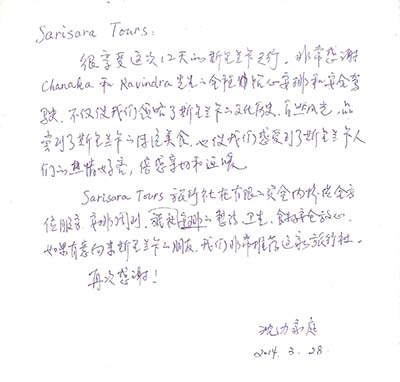 Sarisara Tours:
很享受这次12天的斯里兰卡之行。非常感谢
Chanaka 和 Ravindra 先生的全程精心安排和安全驾
驶。不仅使我们领略了斯里兰卡的文化历史、自然风光，品
尝到了斯里兰卡的传统美食，也使我们感受到了斯里兰卡人
们的热情好客，倍感亲切和温暖。
Sarisara Tours 旅行社在有限的资金内提供全方
位服务，安排周到，整洁卫生，食物安全放心。
如果有意向来斯里兰卡的朋友，我们非常推荐这家旅行社。
再次感谢！
家庭
2014. 3. 28.